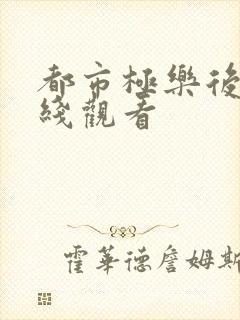 都市極樂後
綫觀看
霍華德詹姆斯